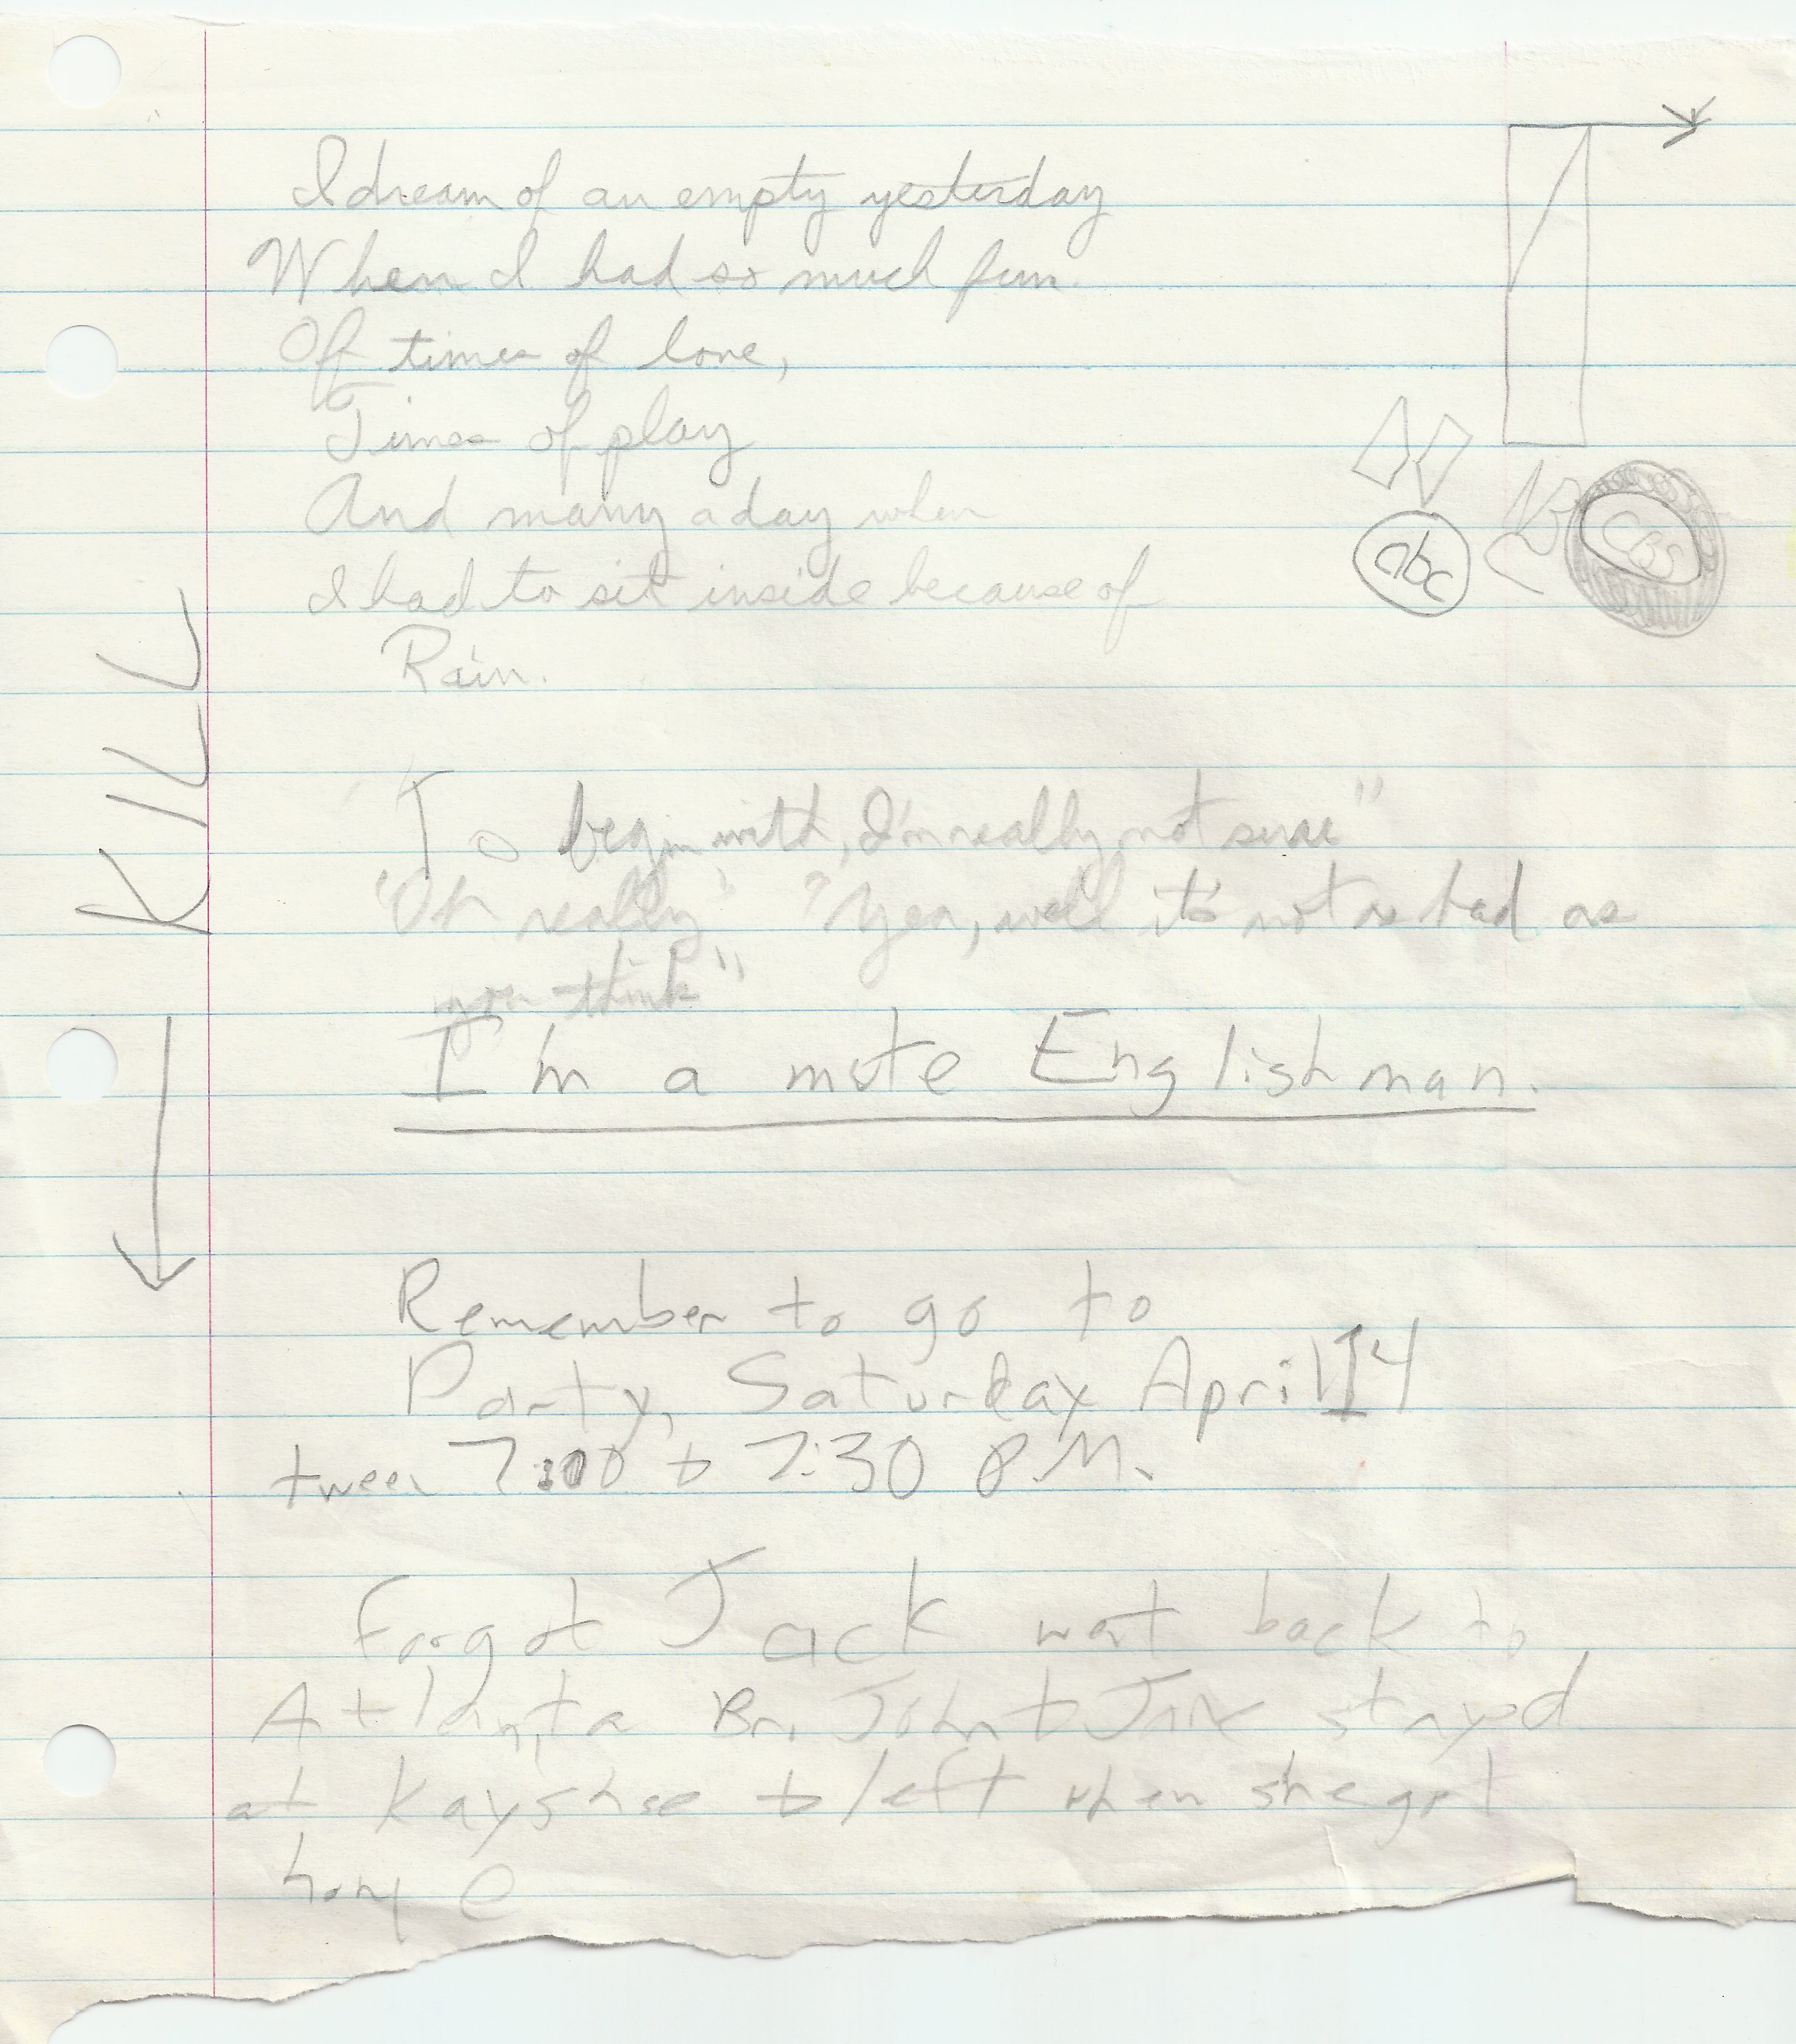 I dream of an empty yesterday
When I had so much fun.
Of times of love,
Times of play
And many a day when
I had to sit inside because of
Rain.
abc
CBS
KILL
To begin with, I'm really not sure"
"Oh really" "Yea, well it's not as bad as
you think"
I'm a mute Englishman.
Remember to go to
Party, Saturday April 14
tween 7:00 to 7:30 P.M.
Forgot Jack went back to
Atlanta Br. John + Jane stayed
at Kayshse + left when she got
home